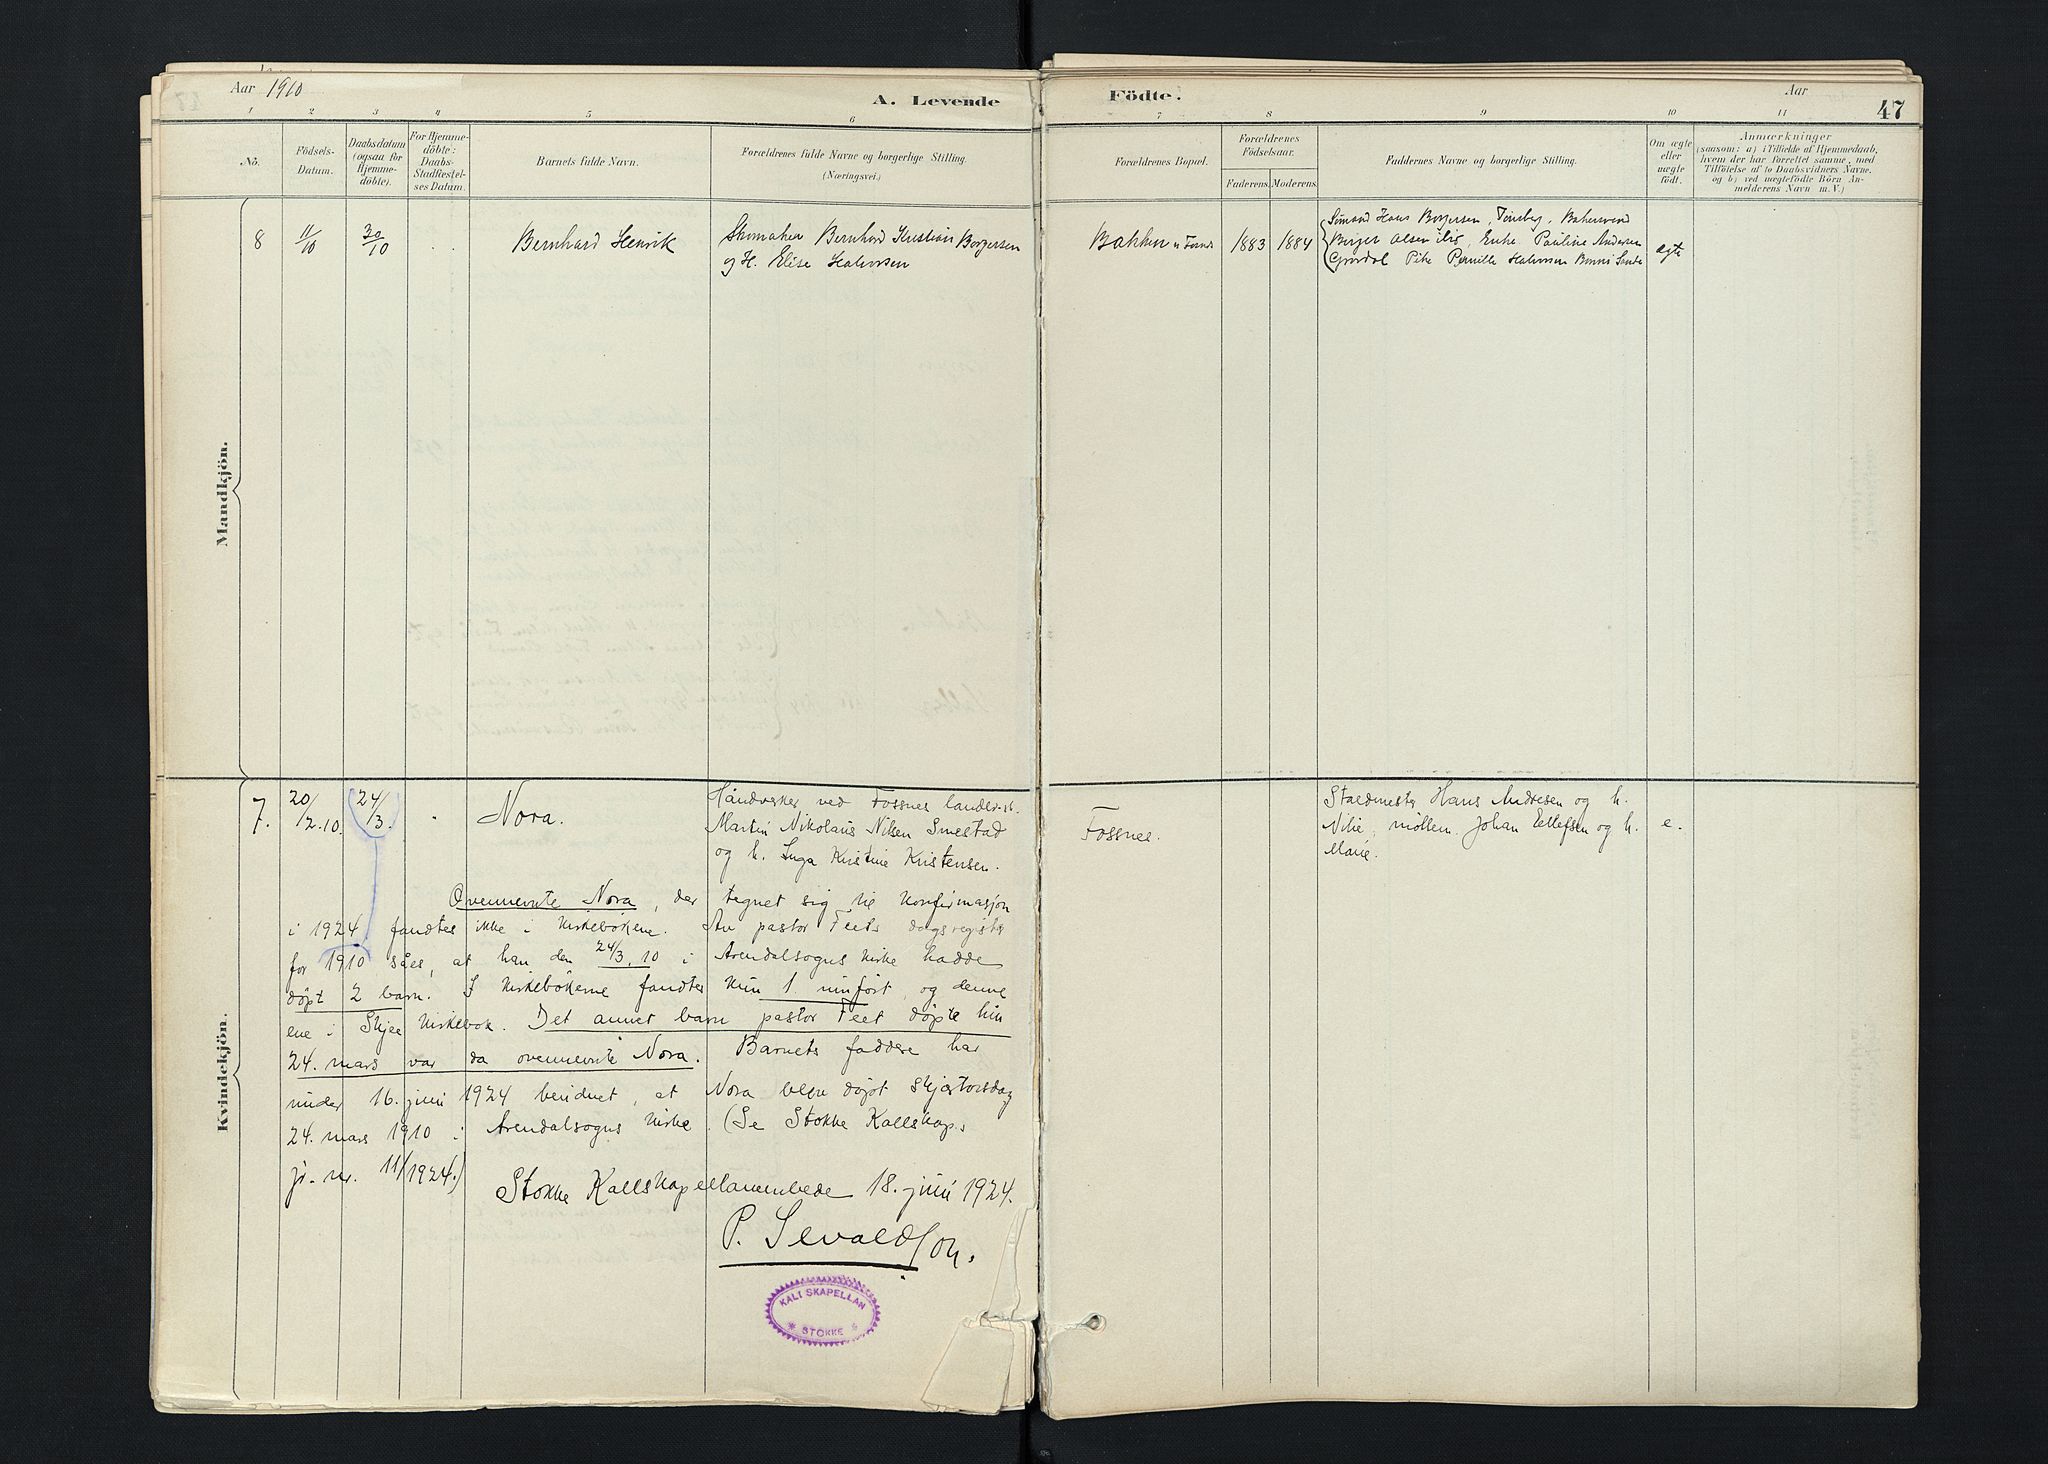 Aar 1910
A. Levende
Födte.
Aar
47
1 2 3 4 5 6 7 8 9 10 11
Nö.
Födsels-
Datum.
Daabsdatum
(ogsaa for
Hjemme-
döbte).
For Hjemme-
döbte:
Daabs-
Stadfæstel-
ses Datum.
Barnets fulde Navn.
Forældrenes fulde Navne og borgerlige Stilling.
(Næringsvei.)
Forældrenes Bopæl.
Forældrenes
Födselsaar.
Faderens. Moderens.
Faddernes Navne og borgerlige Stilling.
Om ægte
eller
uægte
født.
Anmærkninger
(saasom: a) i Tilfælde af Hjemmedaab,
hvem der har forrettet samme, med
Tilföielse af to Daabsvidners Navne.
og b) ved uægtefödte Börn An-
melderens Navn m. V.)
Mandkjön.
8 11/10 30/10 Bernhard Henrik
Skomaker Bernhard Kristian Borgersen
og H. Elise Halvorsen
Bakken u Fosnes 1883 1884
Sömand Hans Borgersen, Tönsberg, Bakersvend
Birger Olsen ibid, Enke Pauline Andersen
Grørdal Pike Pernille Halvorsen Sande
ægte
Kvindekjön.
7. 20/2.10. 24/3. " Nora.
Håndverker ved Fossnes landbr.sk.
Martin Nikolaus Nilsen Smestad
og h. Inga Kristine Kristensen.
Fossnes.
Staldmester Hans Andresen og h.
Nilie, møllem. Johan Ellefsen og h.
Marie.
e.
Ovennevnte Nora, der tegnet sig til Konfirmasjon
i 1924 fandtes ikke i kirkebøkene. Av pastor Feets dagsregister
for 1910 såes, at han den 24/3.10 i Arendalsogns kirke hadde
døpt 2 barn. I kirkebøkerne fandtes kun 1 innført, og denne
ene i Skjee kirkebok. Det annet barn pastor Feet døpte hin
24. mars var da ovennevnte Nora. Barnets faddere har
under 16. juni 1924 bevidnet, at Nora blev døpt skjærtorsdag
24. mars 1910 i Arendalsogns kirke. (Se Stokke Kallskap.
jr. nr. 11/1924.)
Stokke Kallskapellanembede 18. juni 1924.
P. Sevaldson.
KALLSKAPELLAN
* STOKKE *